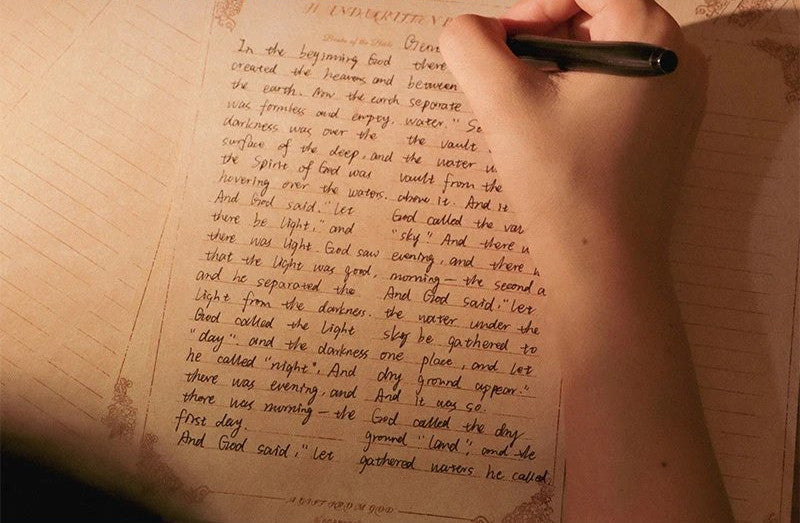 HANDWRITTEN
Books of the Bible
In the beginning God
created the heavens and
the earth. Now the earth
was formless and empty,
darkness was over the
surface of the deep, and
the Spirit of God was
hovering over the waters.
And God said, "let
there be light," and
there was light God saw
that the light was good,
and he separated the
light from the darkness.
God called the light
"day" and the darkness
he called "night". And
there was evening, and
there was morning — the
first day.
And God said, "let
there
between
separate
water." So
the vault
the water
vault from the
above it. And it
God called the
"sky" And there
evening, and there
morning — the second
And God said, "let
the water under the
sky be gathered to
one place, and let
dry ground appear."
And it was so.
God called the dry
ground "land", and the
gathered waters he called
A GIFT FROM GOD